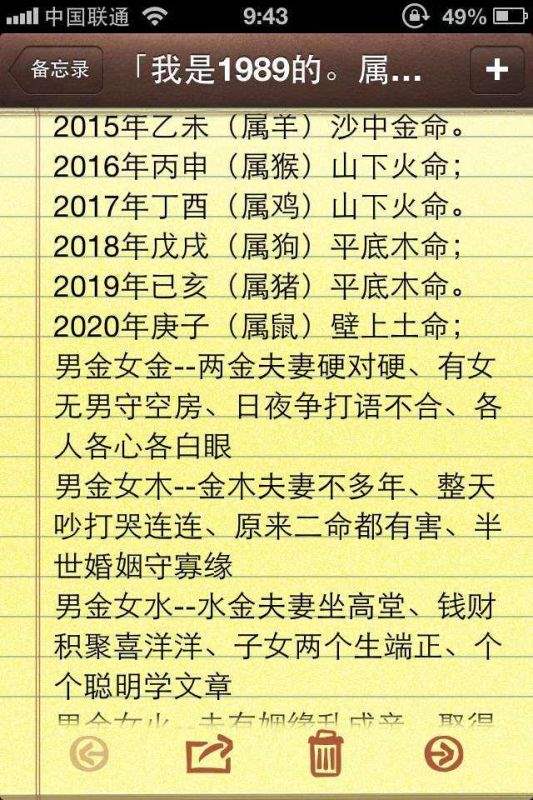 中国联通
9:43
49%
备忘录
「我是1989的。属...
2015年乙未（属羊）沙中金命。
2016年丙申（属猴）山下火命；
2017年丁酉（属鸡）山下火命。
2018年戊戌（属狗）平底木命；
2019年已亥（属猪）平底木命。
2020年庚子（属鼠）壁上土命；
男金女金--两金夫妻硬对硬、有女
无男守空房、日夜争打语不合、各
人各心各白眼
男金女木--金木夫妻不多年、整天
吵打哭连连、原来二命都有害、半
世婚姻守寡缘
男金女水--水金夫妻坐高堂、钱财
积聚喜洋洋、子女两个生端正、个
个聪明学文章
男金女火--未有姻缘乱成亲、娶得